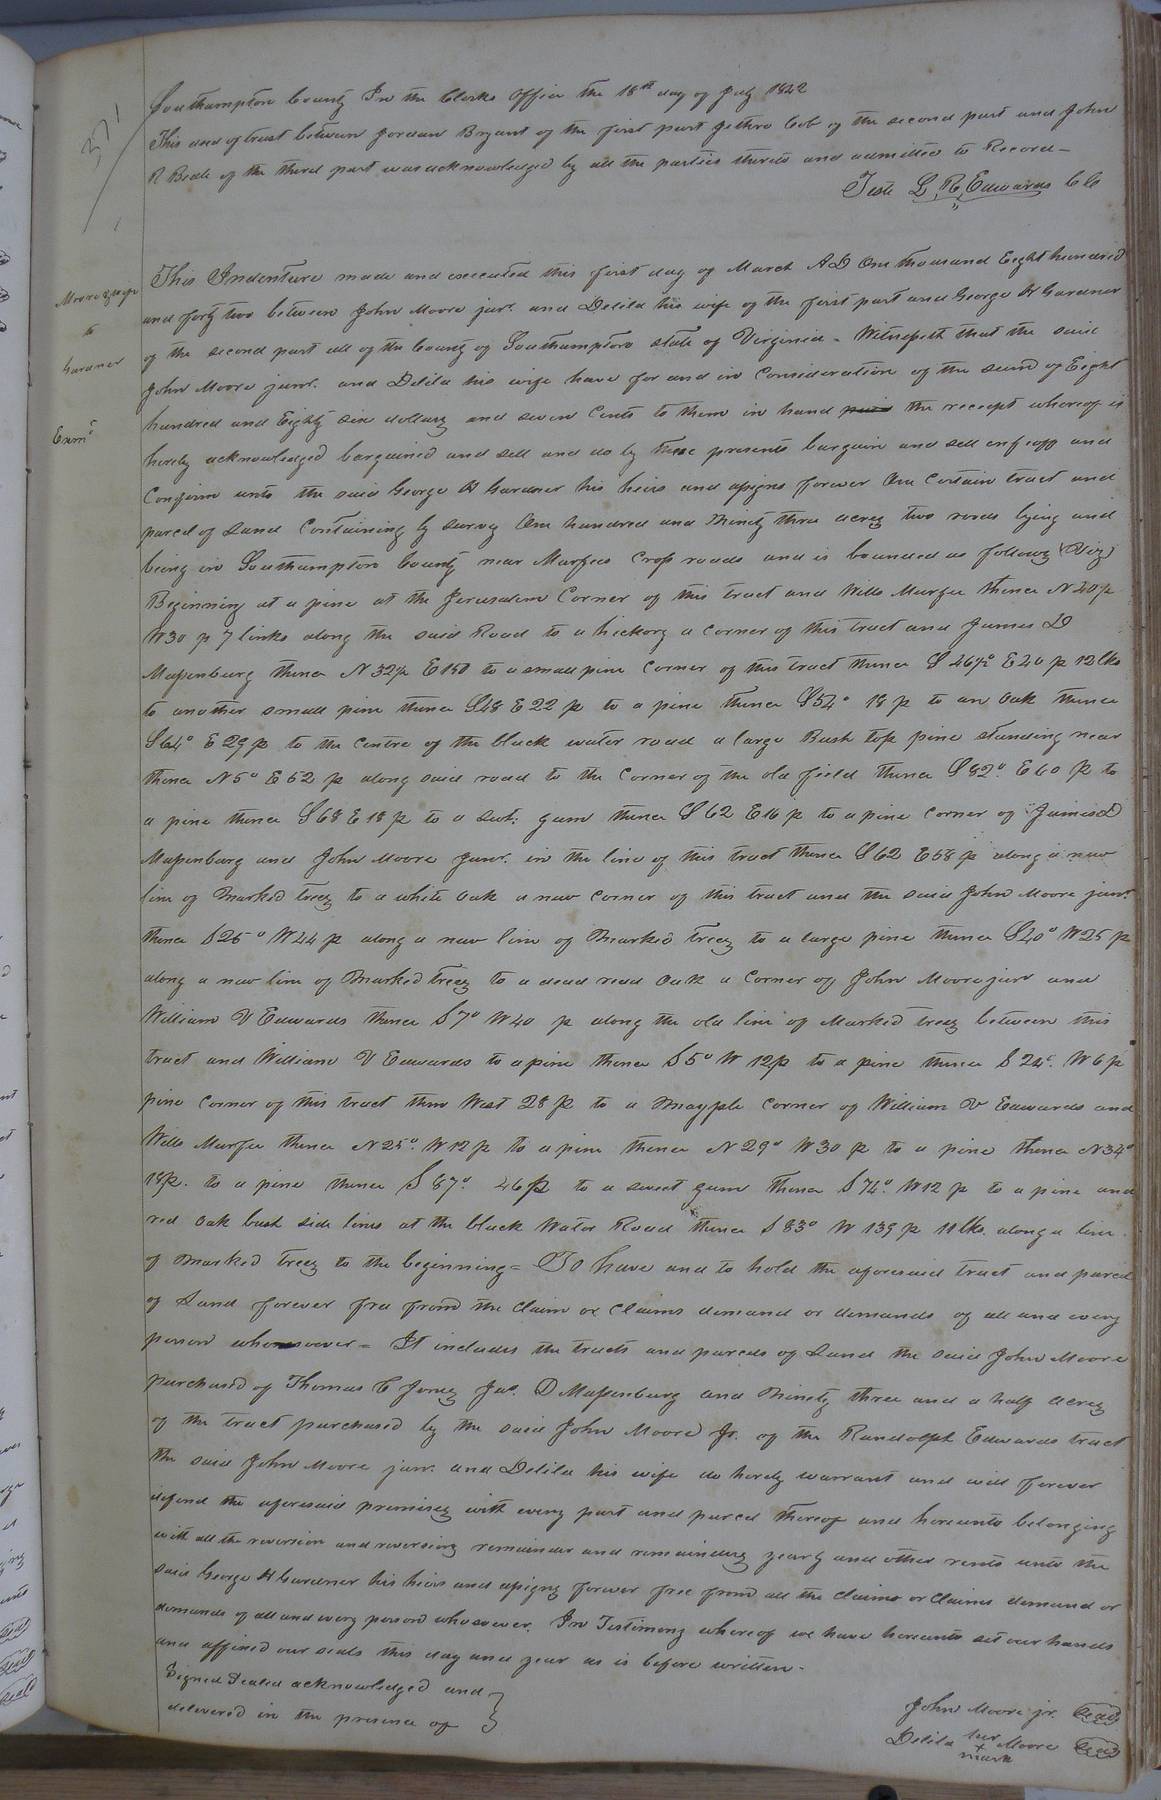 371
Southampton County In the Clerks Office the 18th day of July 1842
This deed of trust between Jordan Bryant of the first part Jethro Cob of the second part and John
R Beale of the third part was acknowledged by all the parties thereto and admitted to Record—
Teste L. R. Edwards CC
Moore & wife
to
Gardner
Exmd
This Indenture made and executed this first day of March AD One thousand Eight hundred
and forty two between John Moore junr. and Delila his wife of the first part and George H Gardner
of the second part all of the County of Southampton state of Virginia - Witnesseth that the said
John Moore junr. and Delila his wife have for and in Consideration of the sum of Eight
hundred and Eighty six dollars and seven Cents to them in hand paid the receipt whereof is
hereby acknowledged bargained and sell and do by these presents bargain and sell enfeoff and
Confirm unto the said George H Gardner his heirs and assigns forever One Certain tract and
parcel of Land Containing by survey One hundred and Ninety three acres two roods lying and
being in Southampton County near Murfees Cross roads and is bounded as follows (Viz)
Beginning at a pine at the Jerusalem Corner of this tract and Wills Murfee thence N 40 p
W 30 p 7 links along the said Road to a hickory a corner of this tract and James D
Massenburg thence N 32½ E 150 to a small pine corner of this tract thence S 46½° E 40 p 12 lks
to another small pine thence S48 E 22 p to a pine thence S54° 18 p to an Oak thence
S64° E 29 p to the centre of the black water road a large Bush top pine standing near
thence N5° E 52 p along said road to the Corner of the old field thence S 82° E 60 p to
a pine thence S68 E 18 p to a swt. gum thence S 62 E 16 p to a pine corner of James D
Massenburg and John Moore Junr. in the line of this tract thence S62 E58 p along a new
line of Marked trees to a white Oak a new corner of this tract and the said John Moore junr.
thence S25° W44 p along a new line of Marked trees to a large pine thence S40° W25 p
along a new line of Marked trees to a dead read Oak a corner of John Moore junr and
William V Edwards thence S7° W 40 p along the old line of Marked trees between this
tract and William V Edwards to a pine thence S 5° W 12p to a pine thence S 24°. W 6 p
pine corner of this tract then West 28 p to a Mayple corner of William V Edwards and
Wills Murfee thence N 25°. W 12 p to a pine thence N 29° W 30 p to a pine thence N34°
18p. to a pine thence S 87° 46p to a sweet gum thence S 74°. W12 p to a pine and
red oak bush side lines at the black Water Road thence S 83° W 139 p 11 lks. along a line
of Marked trees to the beginning = To have and to hold the aforesaid tract and parcel
of Land forever free from the Claim or Claims demand or demands of all and every
person whomsoever = It includes the tracts and parcels of Land the said John Moore
purchased of Thomas C Jones Jas. D Massenburg and Ninety three and a half acres
of the tract purchased by the said John Moore Jr. of the Randolph Edwards tract
the said John Moore junr. and Delila his wife do hereby warrant and will forever
defend the aforesaid premises with every part and parcel thereof and hereunto belonging
with all the reversion and reversions remainder and remainders yearly and other rents unto the
said George H Gardner his heirs and assigns forever free from all the Claims or Claims demand or
demands of all and every person whosoever. In Testimony whereof we have hereunto set our hands
and affixed our seals this day and year as is before written -
Signed Sealed acknowledged and
delivered in the presence of
John Moore jr. Seal
Delila her Moore Seal
+
mark